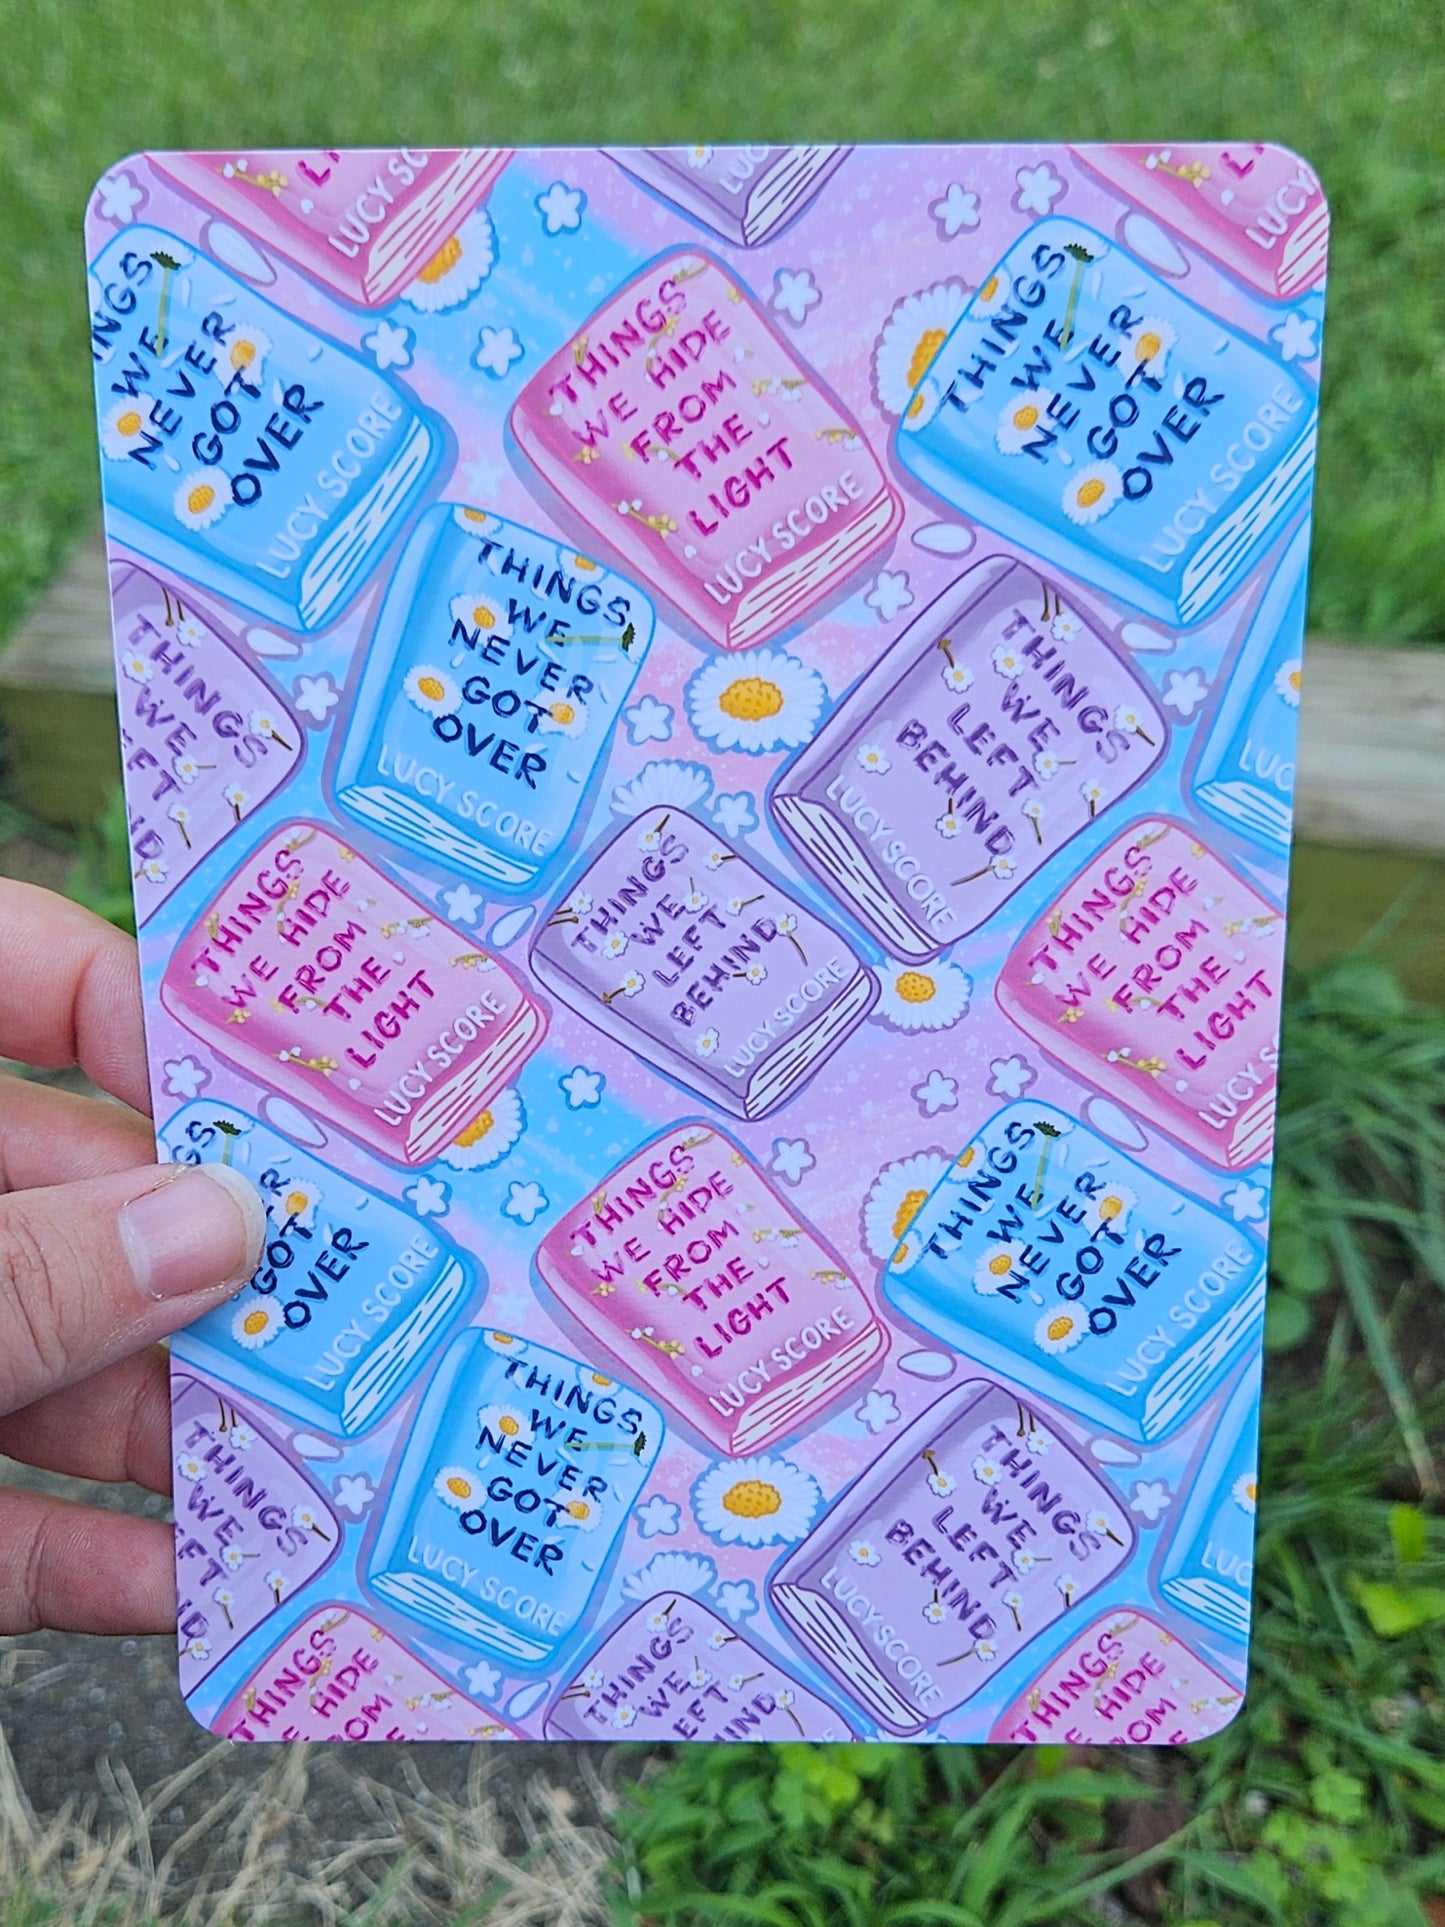 LUCY SC
LUC
LUCY
THINGS
WE
NEVER
GOT
OVER
LUCY SCORE
THINGS
WE HIDE
FROM
THE
LIGHT
LUCY SCORE
THINGS
WE
NEVER
GOT
OVER
LUCY SCORE
THINGS
WE
NEVER
GOT
OVER
LUCY SCORE
THINGS
WE
LEFT
BEHIND
LUCY SCORE
THINGS
WE
LEFT
ND
LUC
THINGS
WE HIDE
FROM
THE
LIGHT
LUCY SCORE
THINGS
WE
LEFT
BEHIND
LUCY SCORE
THINGS
WE HIDE
FROM
THE
LIGHT
LUCY S
GS
ER
GOT
OVER
LUCY SCORE
THINGS
WE HIDE
FROM
THE
LIGHT
LUCY SCORE
THINGS
WE
NEVER
GOT
OVER
LUCY SCORE
THINGS
WE
NEVER
GOT
OVER
LUCY SCORE
THINGS
WE
LEFT
BEHIND
LUCY SCORE
THINGS
WE
LEFT
ND
LUC
THINGS
WE HIDE
FROM
THINGS
WE
LEFT
HIND
THINGS
WE HIDE
FROM